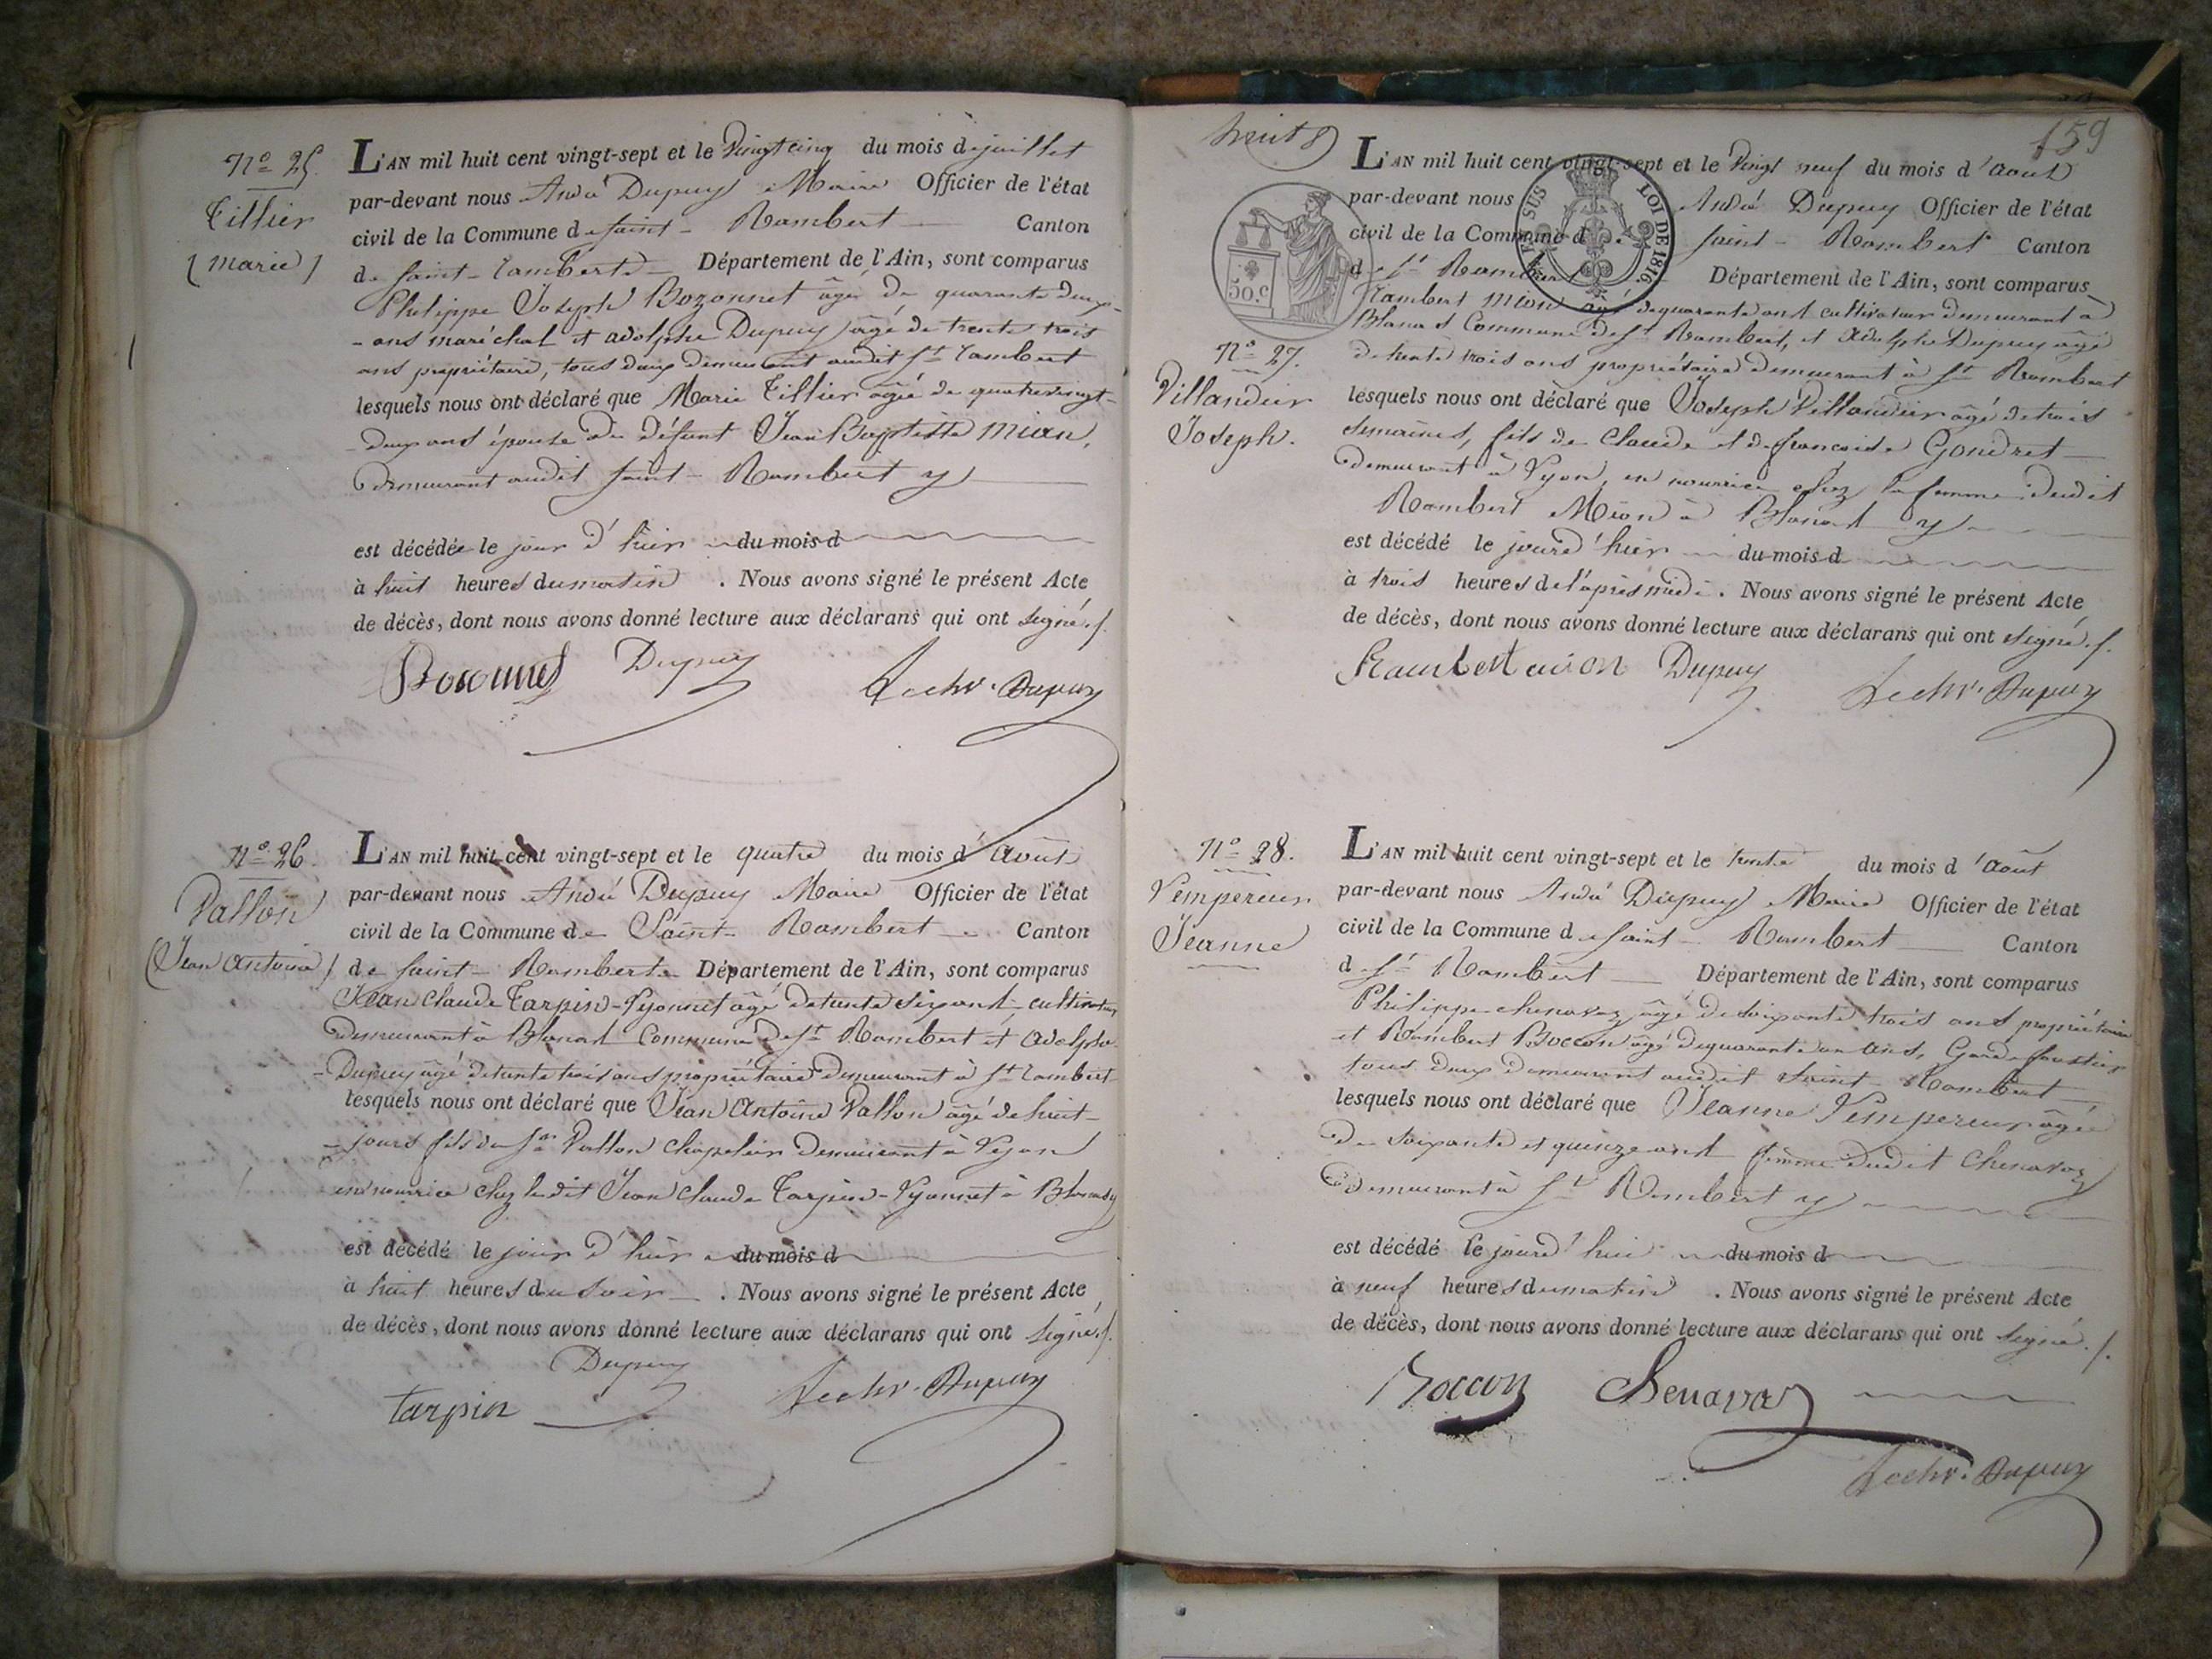 N° 25.
Tillier
(Marie)
L'AN mil huit cent vingt-sept et le Vingt cinq du mois de juillet
par-devant nous André Dupuy Maire Officier de l'état
civil de la Commune de Saint-Rambert Canton
de Saint-rambert Département de l'Ain, sont comparus
Philippe Joseph Bozonnet âgé de quarante deux
ans maréchal et adolphe Dupuy âgé de trente trois
ans propriétaire, tous deux demeurant audit St rambert
lesquels nous ont déclaré que Marie Tillier âgée de quatrevingt-
deux ans épouse de défunt Jean Baptiste Mion,
demeurant audit Saint-Rambert
est décédée le jour d'hier du mois d
à huit heures du matin. Nous avons signé le présent Acte
de décès, dont nous avons donné lecture aux déclarans qui ont signé.
Bozonnet Dupuy Dupuy
N° 26.
Vallon
(Jean Antoine)
L'AN mil huit cent vingt-sept et le quatre du mois d'août
par-devant nous André Dupuy Maire Officier de l'état
civil de la Commune de Saint-Rambert Canton
de Saint-Rambert Département de l'Ain, sont comparus
Jean Claude Tarpin-Lyonnet âgé de trente six ans, cultivateur
demeurant à Blanat Commune de St Rambert et Adolphe
Dupuy âgé de trente trois ans propriétaire demeurant à St rambert
lesquels nous ont déclaré que Jean Antoine Vallon âgé de huit
jours fils du Sr Vallon Chapelier demeurant à Lyon
en nourrice chez ledit Jean Claude Tarpin-Lyonnet à Blanat
est décédé le jour d'hier du mois d
à huit heures du soir. Nous avons signé le présent Acte
de décès, dont nous avons donné lecture aux déclarans qui ont signé.
Dupuy
tarpin Dupuy
huit 8
159
L'AN mil huit cent vingt-sept et le Vingt neuf du mois d'août
par-devant nous André Dupuy Officier de l'état
civil de la Commune de Saint-Rambert Canton
de St Rambert Département de l'Ain, sont comparus
SUS LOI DE 1816
50.c
Rambert Mion âgé de quarante ans cultivateur demeurant à
Blanat Commune de St Rambert, et Adolphe Dupuy âgé
de trente trois ans propriétaire demeurant à St Rambert
N° 27.
Villandier
Joseph.
lesquels nous ont déclaré que Joseph Villandier âgé de trois
semaines, fils de Claude et de françoise Gondret
demeurant à Lyon, en nourrice chez la femme dudit
Rambert Mion à Blanat
est décédé le jour d'hier du mois d
à trois heures de l'après midi. Nous avons signé le présent Acte
de décès, dont nous avons donné lecture aux déclarans qui ont signé.
Rambert mion Dupuy Dupuy
N° 28.
Lempereur
Jeanne
L'AN mil huit cent vingt-sept et le trente du mois d'Août
par-devant nous André Dupuy Maire Officier de l'état
civil de la Commune de Saint-Rambert Canton
de St Rambert Département de l'Ain, sont comparus
Philippe chenavaz âgé de soixante trois ans propriétaire
et Rambert Boccon âgé de quarante un ans, Garde forestier
tous deux demeurant audit Saint-Rambert
lesquels nous ont déclaré que Jeanne Lempereur âgée
de soixante et quinze ans femme dudit Chenavaz
demeurant à St Rambert
est décédé le jourd'hui du mois d
à neuf heures du matin. Nous avons signé le présent Acte
de décès, dont nous avons donné lecture aux déclarans qui ont signé.
Boccon Chenavaz
Dupuy